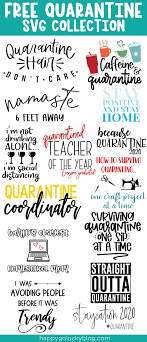 FREE QUARANTINE
SVG COLLECTION
Quarantine
Hair
DON'T-CARE
Caffeine
& quarantine
namaste
6 FEET AWAY
STAY
POSITIVE
AND STAY
HOME
i'm not
drinking
ALONE
i'm social
distancing
quarantined
TEACHER
OF THE YEAR
because
QUARANTINE
2020
HOW TO SURVIVE
QUARANTINE
QUARANTINE
coordinator
one craft project
at a time
surviving
quarantine
one sip
at a time
I WAS
AVOIDING PEOPLE
BEFORE IT WAS
Trendy
STRAIGHT
OUTTA
QUARANTINE
Staycation 2020
#QUARANTINE
happygoluckyblog.com